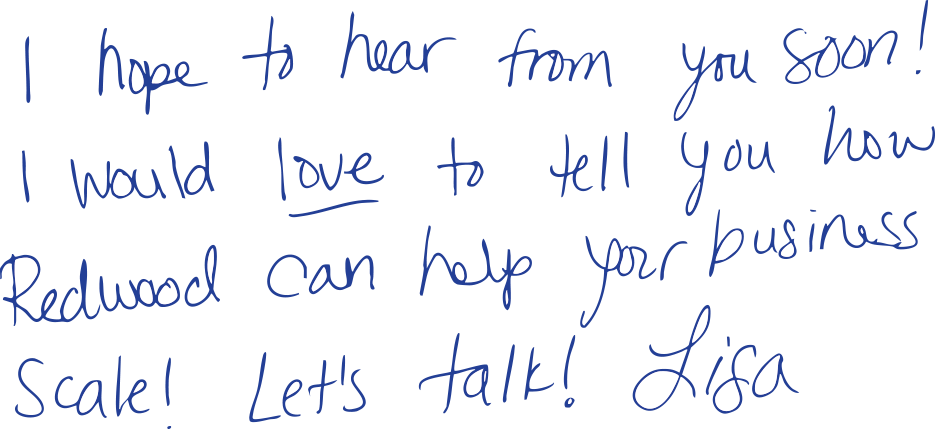 I hope to hear from you soon!
I would love to tell you how
Redwood can help your business
Scale! Let's talk! Lisa